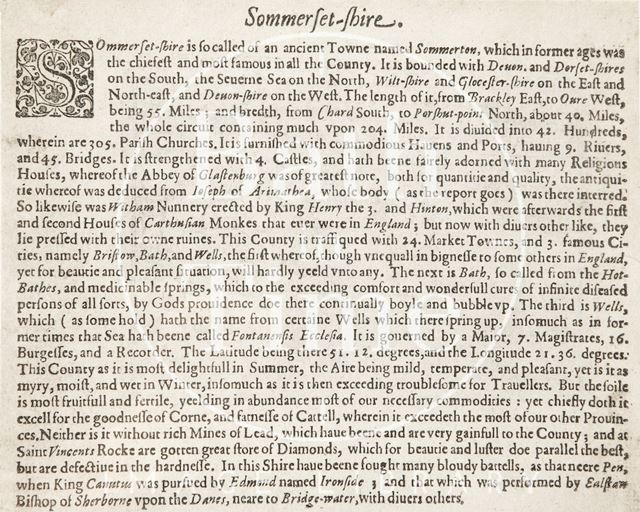 Sommerſet-ſhire.
SOmmerſet-ſhire is ſo called of an ancient Towne named Sommerton, which in former ages was
the chiefeſt and moſt famous in all the County. It is bounded with Deuon. and Dorſet-ſhires
on the South, the Seuerne Sea on the North, Wilt-ſhire and Gloceſter-ſhire on the Eaſt and
North-eaſt, and Deuon-ſhire on the Weſt. The length of it, from Brackley Eaſt, to Oure Weſt,
being 55. Miles; and bredth, from Chard South, to Porſhut-point North, about 40. Miles,
the whole circuit containing much vpon 204. Miles. It is diuided into 42. Hundreds,
wherein are 305. Pariſh Churches. It is furniſhed with commodious Hauens and Ports, hauing 9. Riuers,
and 45. Bridges. It is ſtrengthened with 4. Caſtles, and hath beene fairely adorned with many Religious
Houſes, whereof the Abbey of Glaſtenburg was of greateſt note, both for quantitie and quality, the antiqui-
tie whereof was deduced from Ioſeph of Arimathea, whoſe body (as the report goes) was there interred.
So likewiſe was Witham Nunnery erected by King Henry the 3. and Hinton, which were afterwards the firſt
and ſecond Houſes of Carthuſian Monkes that euer were in England; but now with diuers other like, they
lie preſſed with their owne ruines. This County is traffiqued with 24. Market Townes, and 3. famous Ci-
ties; namely Briſtow, Bath, and Wells, the firſt whereof, though vnequall in bigneſſe to ſome others in England,
yet for beautie and pleaſant ſituation, will hardly yeeld vnto any. The next is Bath, ſo called from the Hot-
Bathes, and medicinable ſprings, which to the exceeding comfort and wonderfull cures of infinite diſeaſed
perſons of all ſorts, by Gods prouidence doe there continually boyle and bubble vp. The third is Wells,
which (as ſome hold) hath the name from certaine Wells which there ſpring up, inſomuch as in for-
mer times that Sea hath beene called Fontanenſis Eccleſia. It is gouerned by a Maior, 7. Magiſtrates, 16.
Burgeſſes, and a Recorder. The Latitude being there 51. 12. degrees, and the Longitude 21. 36. degrees.
This County as it is moſt delightfull in Summer, the Aire being mild, temperate, and pleaſant, yet is it as
myry, moiſt, and wet in Winter, inſomuch as it is then exceeding troubleſome for Trauellers. But the ſoile
is moſt fruitfull and fertile, yeelding in abundance moſt of our neceſſary commodities: yet chiefly doth it
excell for the goodneſſe of Corne, and fatneſſe of Cattell, wherein it exceedeth the moſt of our other Prouin-
ces. Neither is it without rich Mines of Lead, which haue beene and are very gainfull to the County; and at
Saint Vincents Rocke are gotten great ſtore of Diamonds, which for beautie and luſter doe parallel the beſt,
but are defectiue in the hardneſſe. In this Shire haue beene fought many bloudy battells, as that neere Pen,
when King Canutus was purſued by Edmund named Ironſide; and that which was performed by Ealſtan
Biſhop of Sherborne vpon the Danes, neare to Bridge-water, with diuers others.